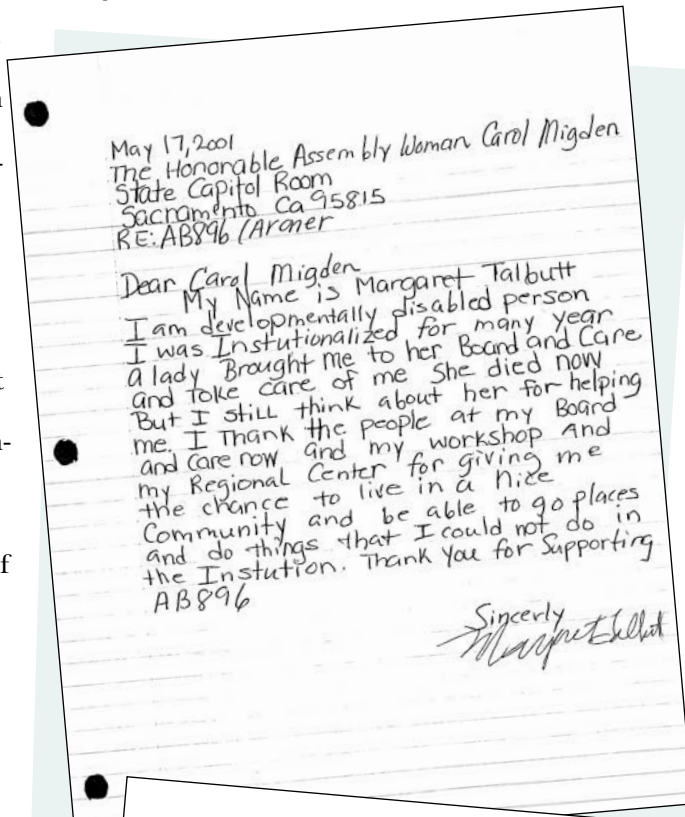 May 17, 2001
The Honorable Assembly Woman Carol Migden
State Capitol Room
Sacramento Ca 95815
RE: AB896 (Aroner
Dear Carol Migden
My Name is Margaret Talbutt
I am developmentally disabled person
I was Instutionalized for many year
a lady Brought me to her Board and Care
and toke care of me She died now
But I still think about her for helping
me. I Thank the people at my Board
and Care now and my workshop and
my Regional Center for giving me
the chance to live in a nice
Community and be able to go places
and do things that I could not do in
the Instution. Thank you for Supporting
AB896
Sincerly